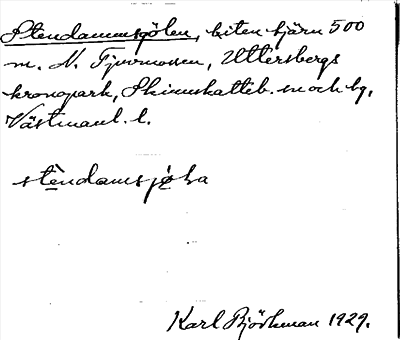 Stendammsjölen, liten tjärn 500
m. N. Tjurmossen, Uttersbergs
kronopark, Skinnskatteb. sn och bg,
Västmanl. l.
stèndamsjø̀la
Karl Björkman 1929.